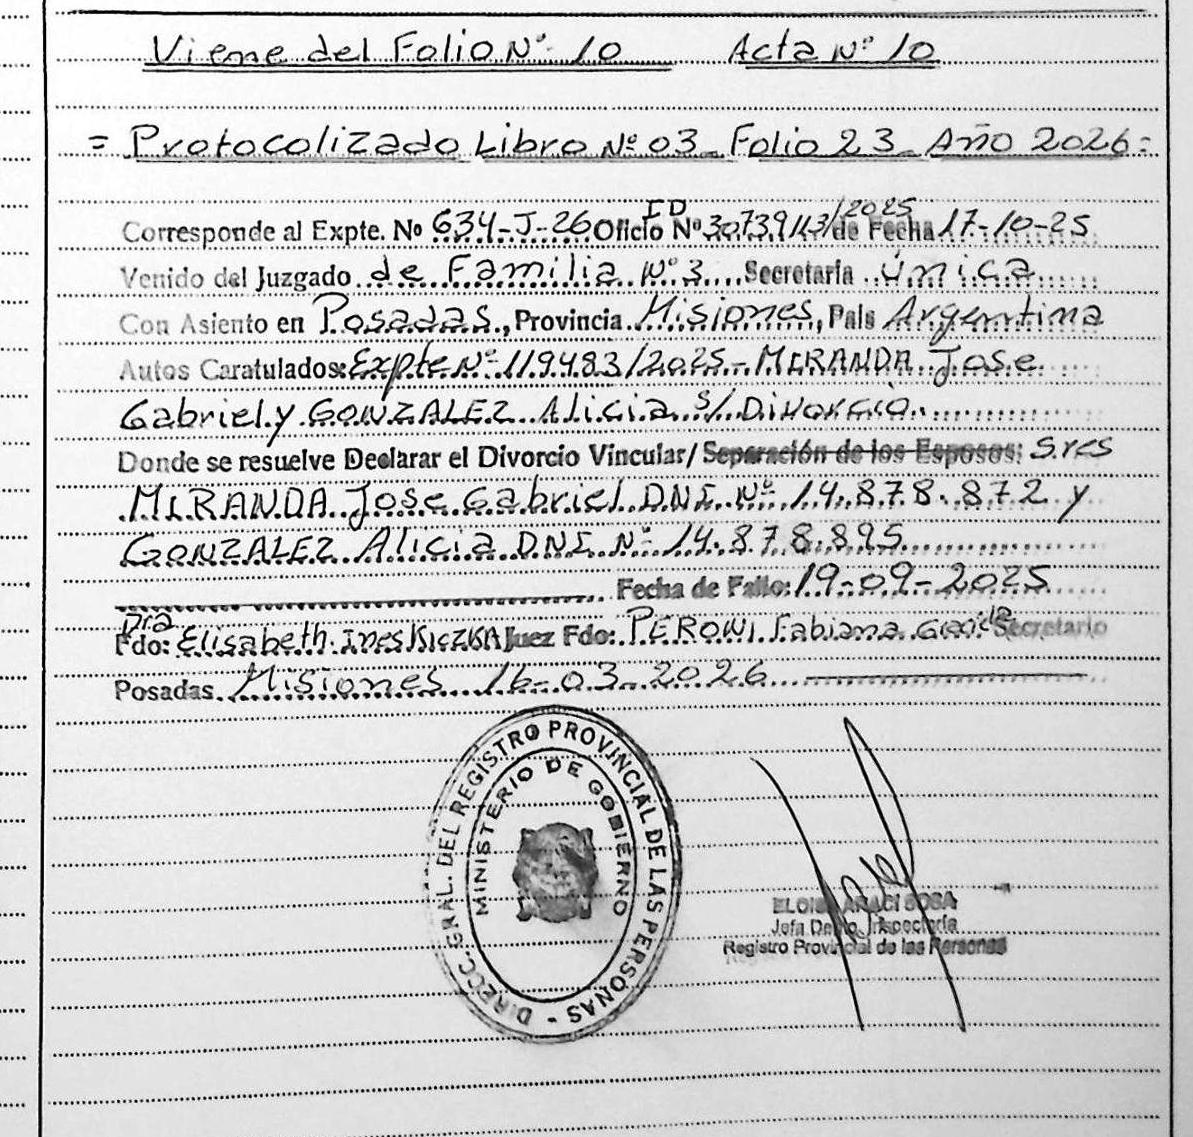 Viene del Folio Nº 10 Acta Nº 10
= Protocolizado Libro Nº 03 - Folio 23 - Año 2026 =
Corresponde al Expte. Nº 634-J-26 Oficio ED Nº 30739113/2025 de Fecha 17-10-25
Venido del Juzgado de Familia Nº 3 Secretaría Única
Con Asiento en Posadas, Provincia Misiones, País Argentina
Autos Caratulados: Expte Nº 119483/2025 - MIRANDA Jose
Gabriel y GONZALEZ Alicia s/ Divorcio
Donde se resuelve Declarar el Divorcio Vincular/ Separación de los Esposos: Sres
MIRANDA Jose Gabriel DNI Nº 14.878.872 y
GONZALEZ Alicia DNI Nº 14.878.895
Fecha de Fallo: 19-09-2025
Fdo: Dra Elisabeth Ines KICZKA Juez Fdo: PERONI Fabiana Secretario
Posadas Misiones 16-03-2026
DIRECC. GRAL. DEL REGISTRO PROVINCIAL DE LAS PERSONAS -
MINISTERIO DE GOBIERNO
ARACI SOSA
Jefa Dpto Inspectoría
Registro Provincial de las Personas